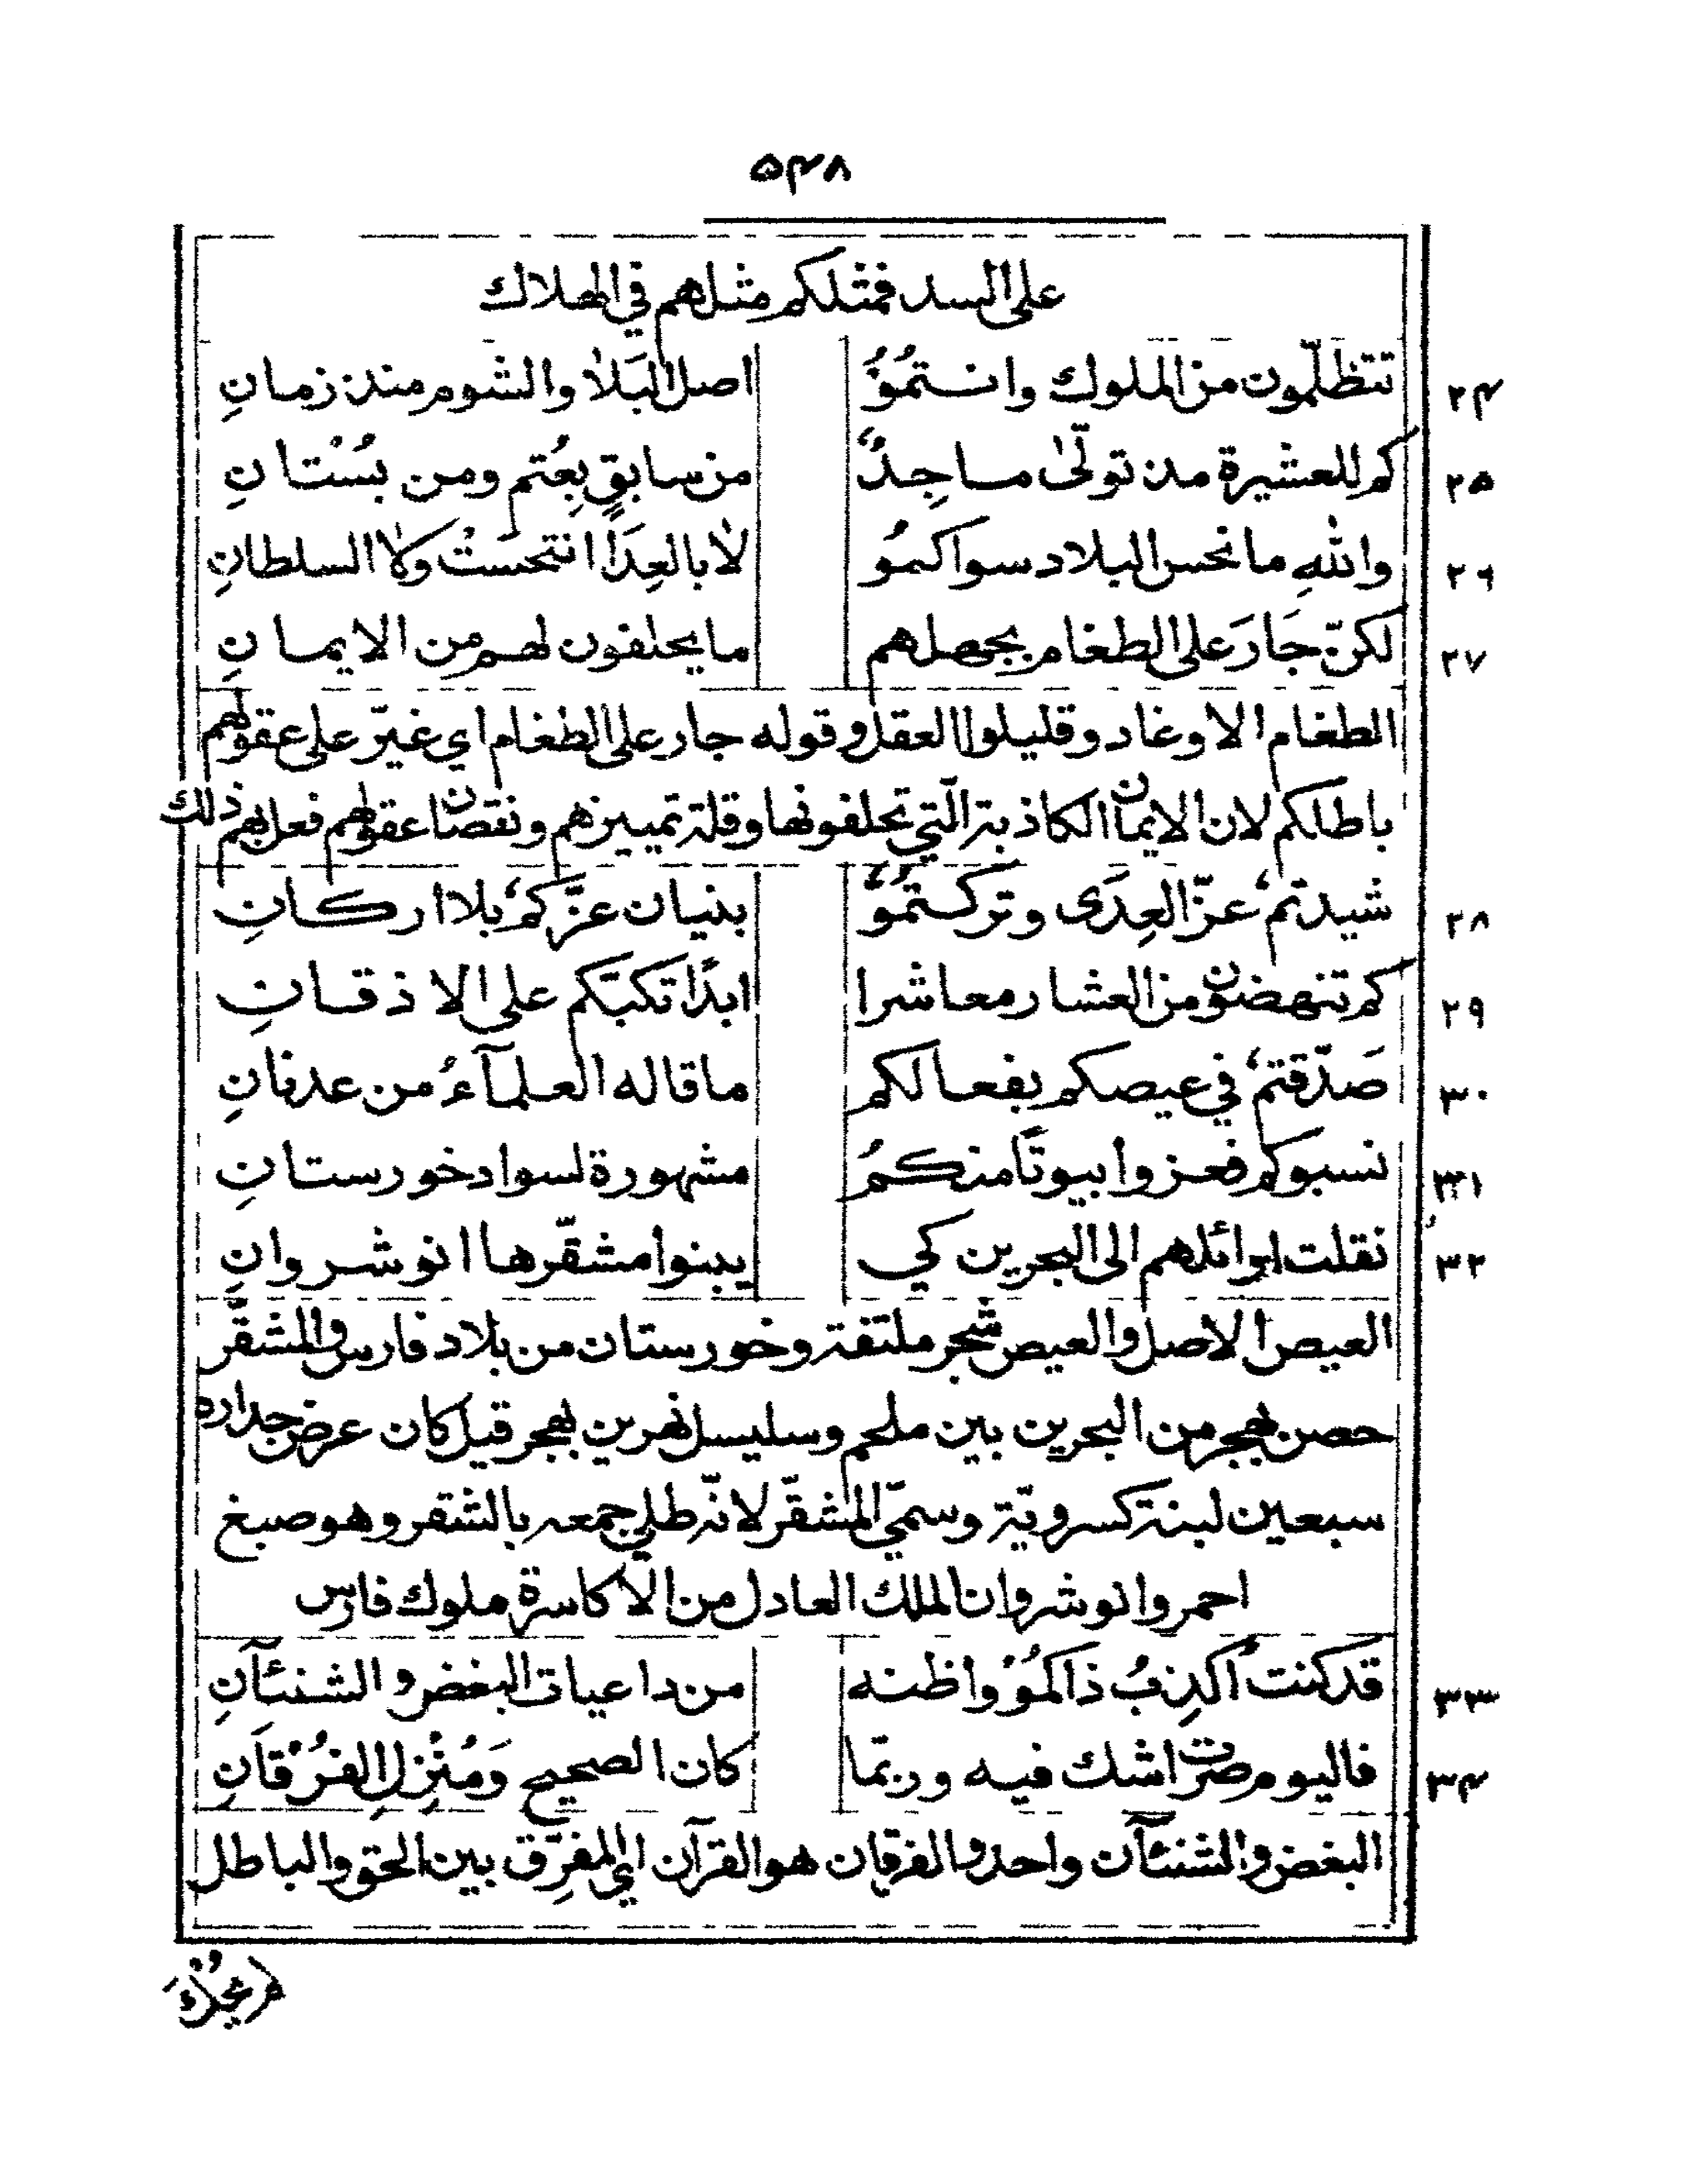 ۵۴۸
على السد فمثلكم مثلهم في الهلاك
۲۴ تتظلّمون من الملوك وانتمُوُ اصل البَلا والشوم منذ زمانِ
۲۵ كم للعشيرة مذ تولّى ماجِدٌ من سابقٍ بِعُتم ومن بُسْتانِ
۲۶ واللهِ ما نحس البلاد سواكمُو لا بالعِدَا انتحسَتْ ولا السلطانِ
۲۷ لكنّ جَارَ على الطغام بجهلهم ما يحلفون لهم من الايمانِ
الطغام الاوغاد وقليلوا العقل وقوله جار على الطغام اي غيّر على عقولهم
باطلكم لان الايمان الكاذبة الّتي تحلفونها وقلة تمييزهم ونقصان عقولهم فعل بهم ذلك
۲۸ شيدتم عزّ العِدَى وتركتمُوُ بنيان عزّكم بلا اركانِ
۲۹ كم تنهضون من العشار معاشرا ابدًا تكبّكم على الاذقانِ
۳۰ صَدّقتم في عيصكم بفعالكم ما قاله العلمآءُ من عدنانِ
۳۱ نسبوكم فعزوا بيوتًا منكمُ مشهورة لسواد خورستانِ
۳۲ نقلت اوائلهم الى البحرين كي يبنوا مشقّرها انوشروانِ
العيص الاصل والعيص شجر ملتفة وخورستان من بلاد فارس والمشقَّر
حصن بهجر من البحرين بين ملحم وسليسل نهرين بهجر قيل كان عرض جداره
سبعين لبنة كسرويّة وسمّي المشقّر لانّه طلي جمعه بالشقر وهو صبغ
احمر وانوشروان الملك العادل من الاكاسرة ملوك فارس
۳۳ قد كنت اكذِبُ ذاكمُوْ واظنه من داعيات البغض والشنئآنِ
۳۴ فاليوم صرت اشك فيه وربّما كان الصحيح وَمُنْزِلِ الفُرْقَانِ
البغض والشنئآن واحد والفرقان هو القرآن اي المفرّق بين الحق والباطل